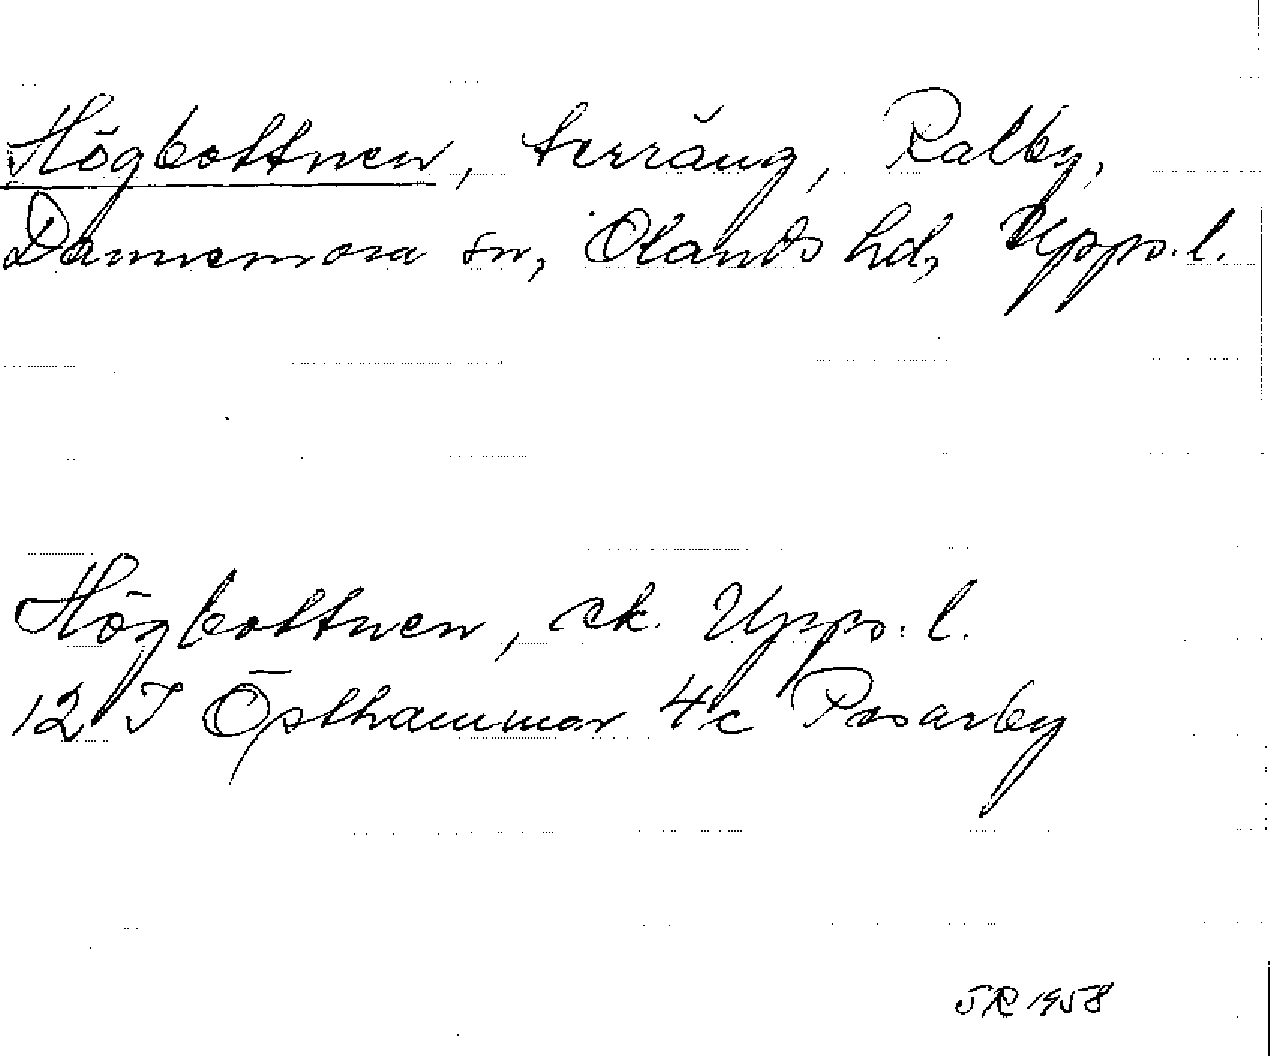 Högbottnen, terräng, Ralby,
Dannemora sn, Olands hd, Upps. l.
Högbottnen, ek. Upps. l.
12 I Östhammar 4c Pasarby
SR 1958